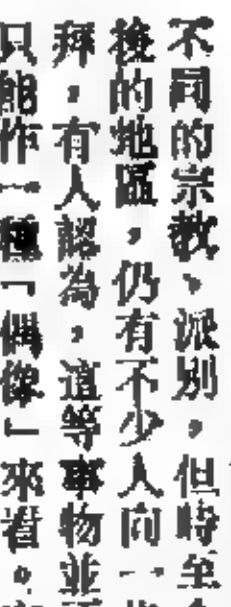 不同的宗教、派別，但時至
後的地區，仍有不少人向一
拜，有人認為，這等事物並
只能作一種「偶像」來看。